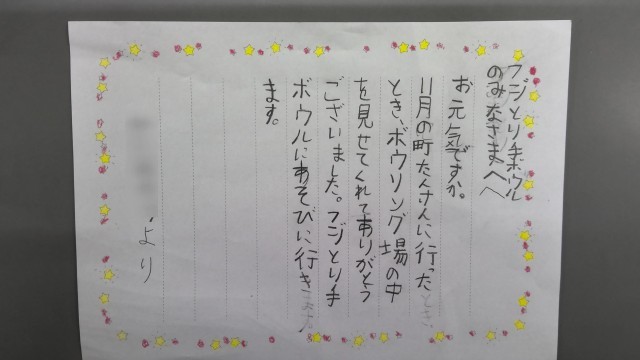 フジとり手ボウル
のみなさまへ
お元気ですか。
11月の町たんけんに行ったとき、
とき、ボウリング場の中
を見せてくれてありがとう
ございました。フジとり手
ボウルにあそびに行き
ます。
より